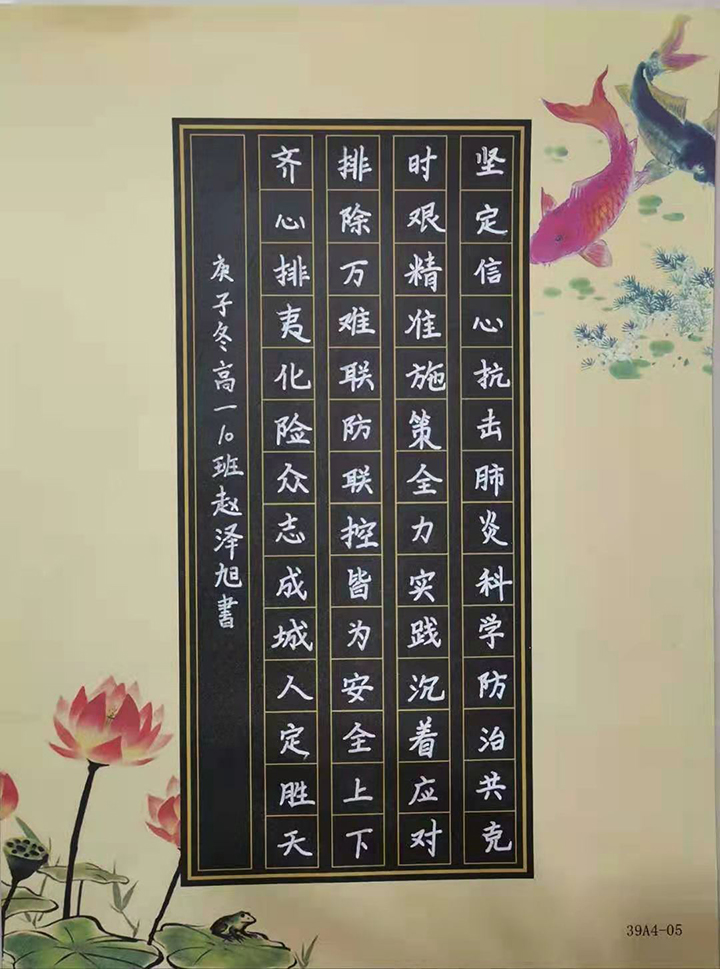 坚定信心抗击肺炎科学防治共克
时艰精准施策全力实践沉着应对
排除万难联防联控皆为安全上下
齐心排夷化险众志成城人定胜天
庚子冬高一10班赵泽旭書
39A4-05